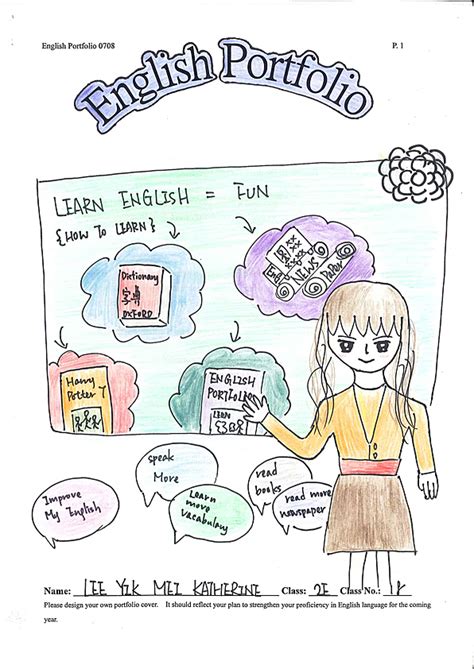 English Portfolio 0708
P. 1
English Portfolio
LEARN ENGLISH = FUN
{HOW TO LEARN}
Dictionary
字典
OXFORD
NEWS
PAPER
Harry
Potter 7
ENGLISH
PORTFOLIO
LEARN
speak
More
Improve
My English
Learn
more
Vocabulary
read
books
read more
newspaper
Name: LEE YIK MEI KATHERINE Class: 2E Class No.: 18
Please design your own portfolio cover. It should reflect your plan to strengthen your proficiency in English language for the coming
year.